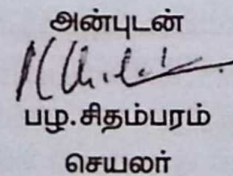 அன்புடன்
பழ.சிதம்பரம்
செயலர்